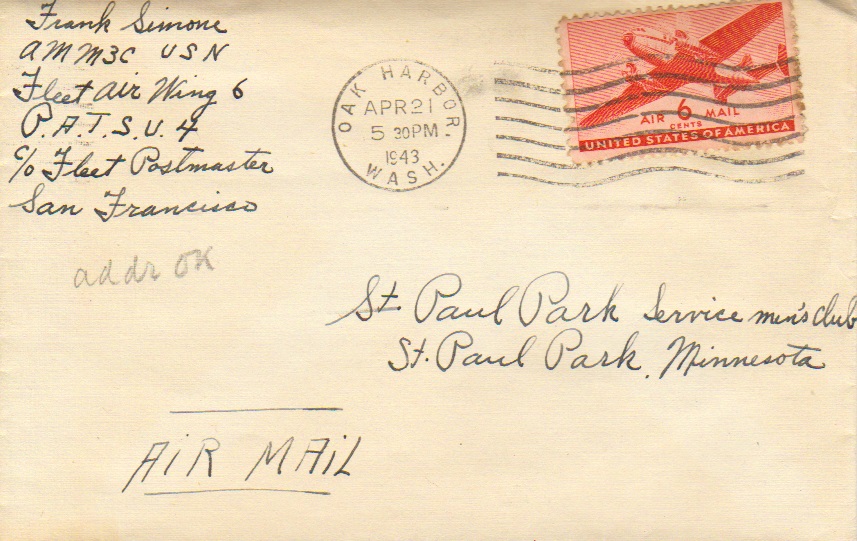 Frank Simone
AMM3C USN
Fleet Air Wing 6
P.A.T.S.U. 4
c/o Fleet Postmaster
San Francisco
addr OK
OAK HARBOR.
APR 21
5 30PM
1943
WASH.
AIR 6 MAIL
CENTS
UNITED STATES OF AMERICA
St. Paul Park Service men's club
St. Paul Park, Minnesota
AiR MAiL